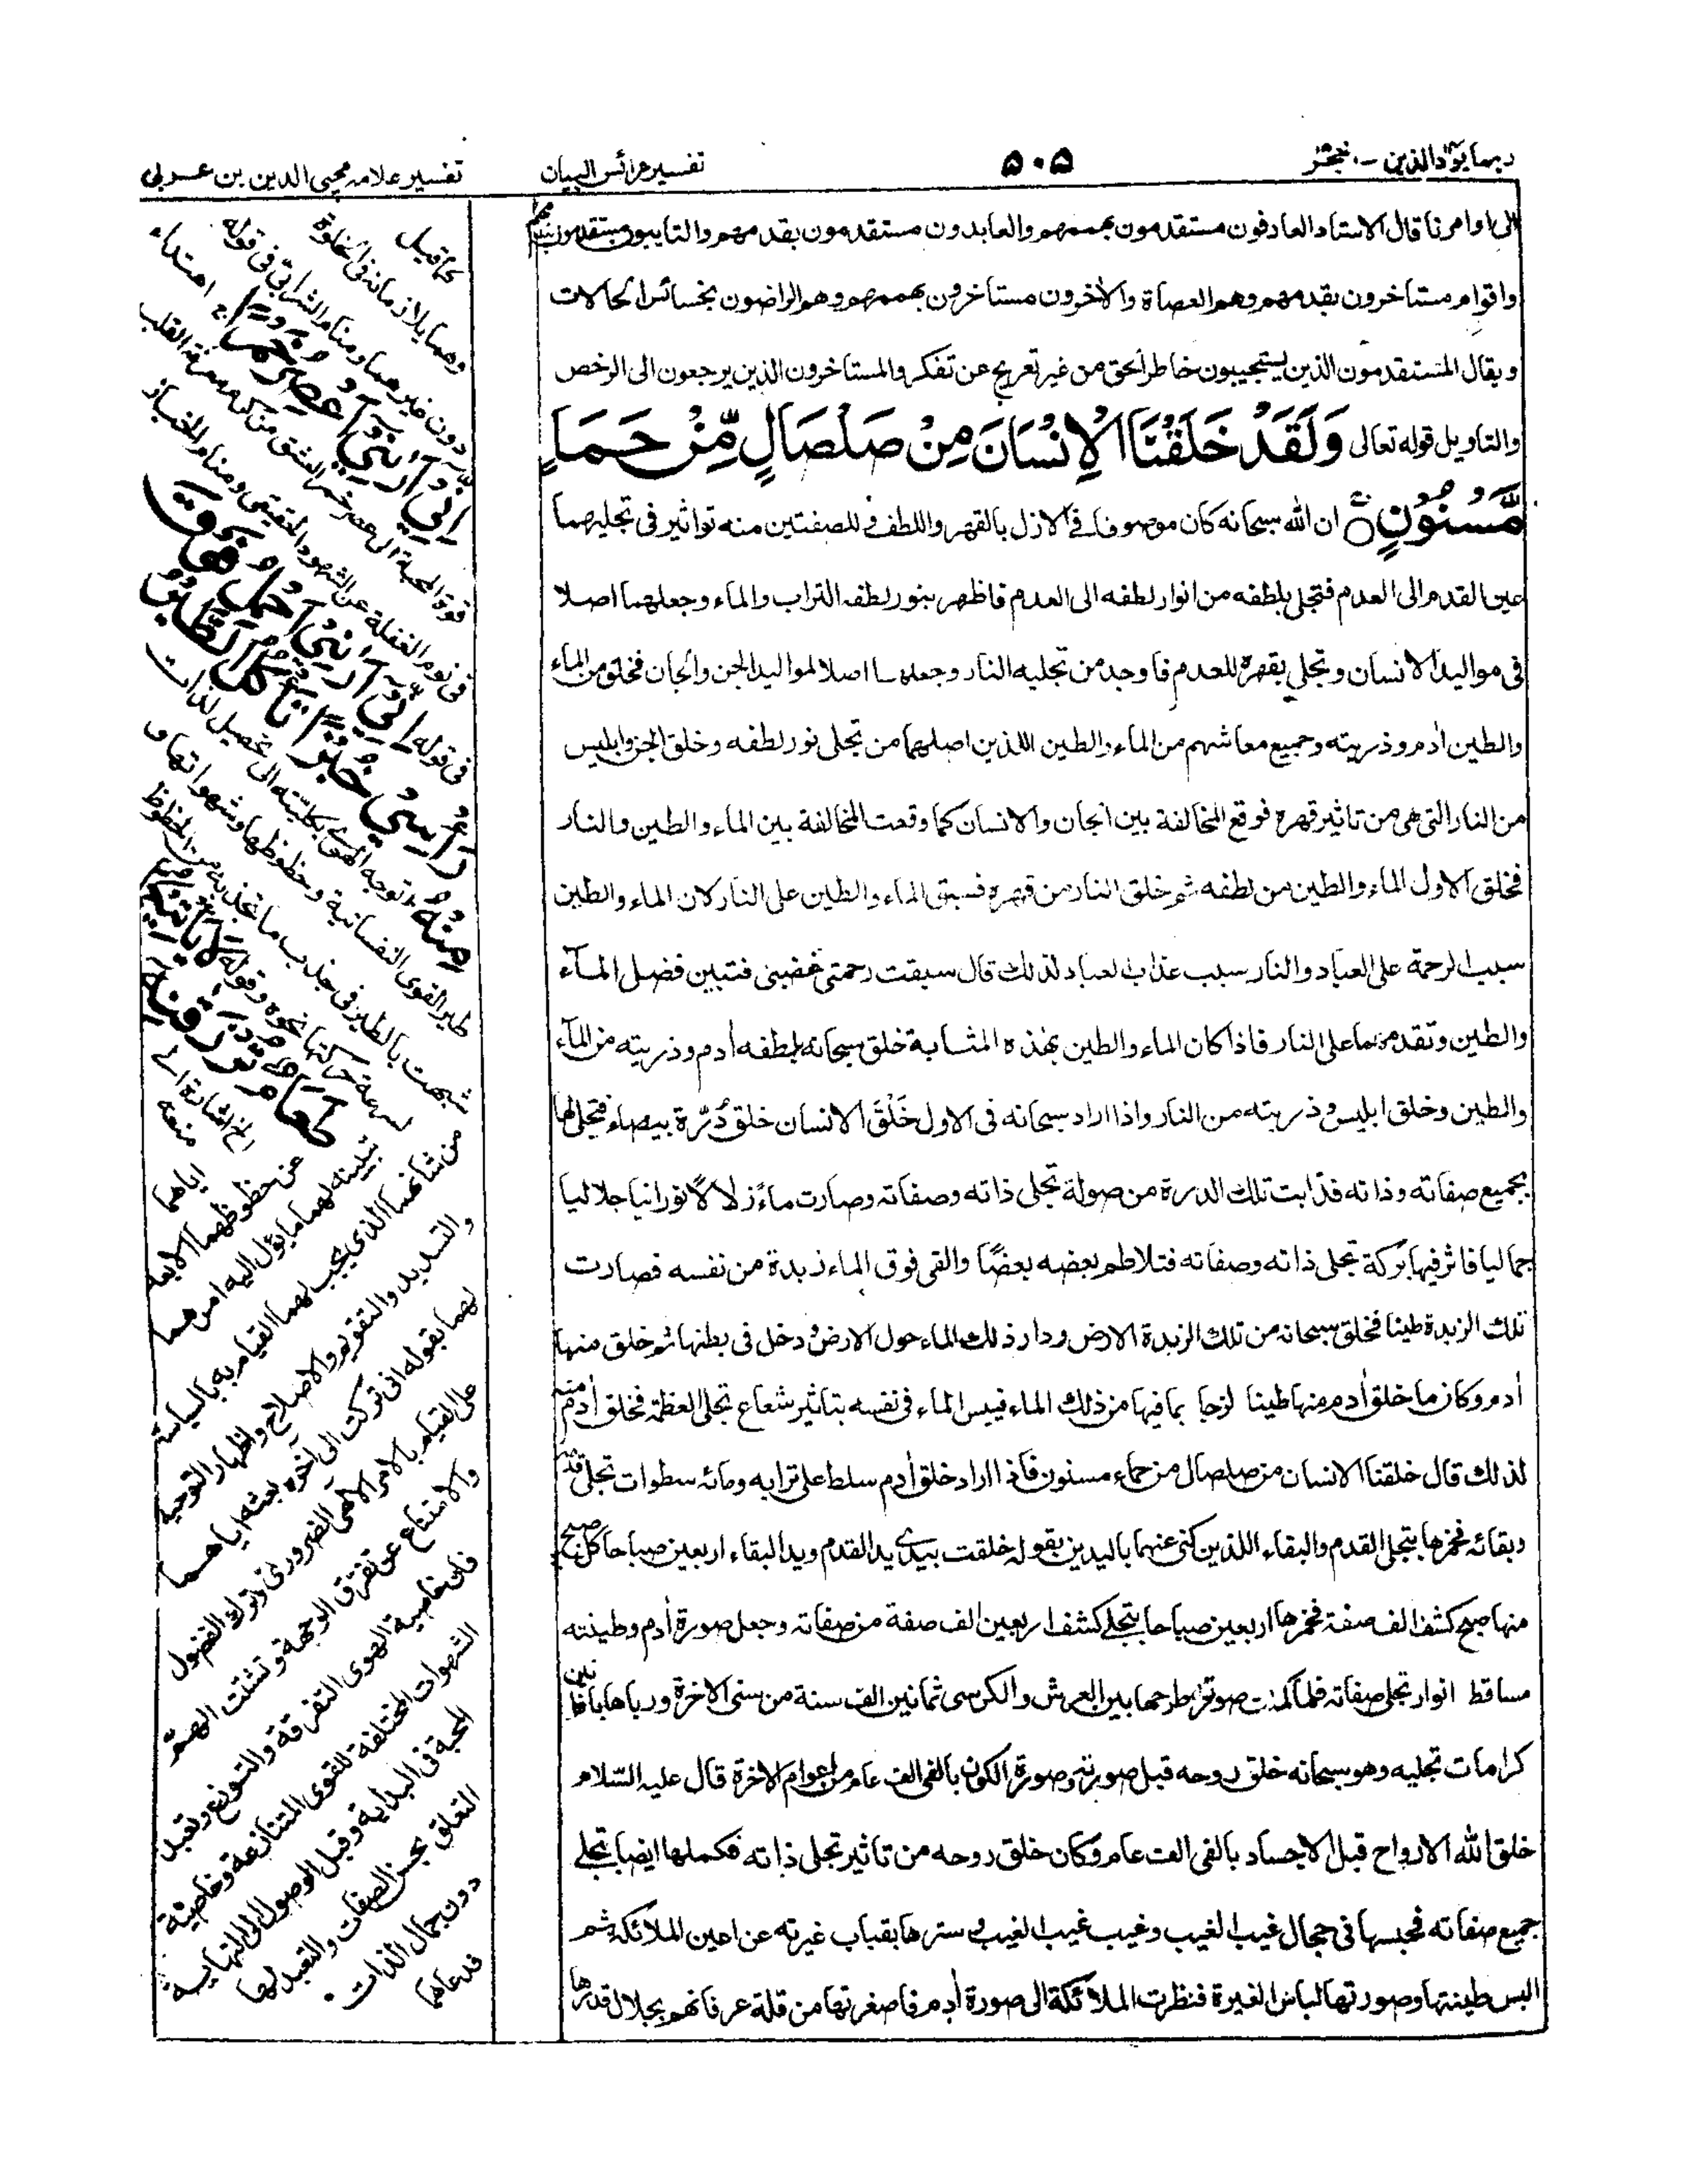 ربما يود الذين - حجر
٥٠٥
تفسير عرائس البيان
تفسير علامه محيى الدين بن عربى
الى اوامرنا قال الاستاد العارفون مستقدمون بهممهم والعابدون مستقدمون بقدمهم والتايبون مستقدمون
واقوام مستاخرون بقدمهم وهم العصاة والاخرون مستاخرون بهممهم وهم الراضون بخسائس الحالات
ويقال المستقدمون الذين يستجيبون خاطر الحق من غير تعريج عن تفكر والمستاخرون الذين يرجعون الى الرخص
والتاويل قوله تعالى وَلَقَدْ خَلَقْنَا الْاِنْسَانَ مِنْ صَلْصَالٍ مِّنْ حَمَاٍ
مَّسْنُوْنٍ ان الله سبحانه كان موصوفا فى الازل بالقهر واللطف فى للصفتين منه تواثير فى تجليهما
عين القدم الى العدم فتجلى بلطفه من انوار لطفه الى العدم فاظهر بنور لطفه التراب والماء وجعلهما اصلا
فى مواليد الانسان وتجلى بقهره للعدم فاوجد من تجليه النار وجعلها اصلا لمواليد الجن والجان فخلق من الماء
والطين ادم وذريته وجميع معاشهم من الماء والطين اللذين اصلهما من تجلى نور لطفه وخلق الجن وابليس
من النار التى هى من تاثير قهره فوقع المخالفة بين الجان والانسان كما وقعت المخالفة بين الماء والطين والنار
فخلق الاول الماء والطين من لطفه ثم خلق النار من قهره فسبق الماء والطين على النار لان الماء والطين
سبب الرحمة على العباد والنار سبب عذاب العباد لذلك قال سبقت رحمتى غضبى فتبين فضل المآء
والطين وتقدمهما على النار فاذا كان الماء والطين بهذه المثابة خلق سبحانه بلطفه ادم وذريته من المآء
والطين وخلق ابليس وذريته من النار واذا اراد سبحانه فى الاول خَلْقَ الانسان خلق دُرّة بيضاء فتجلى لها
بجميع صفاته وذاته فذابت تلك الدرة من صولة تجلى ذاته وصفاته وصارت ماءً زلالاً نورانيا جلاليا
جماليا فاثر فيها بركة تجلى ذاته وصفاته فتلاطم بعضه بعضًا والقى فوق الماء زبدة من نفسه فصارت
تلك الزبدة طينا فخلق سبحانه من تلك الزبدة الارض ودار ذلك الماء حول الارض ودخل فى بطنها ثم خلق منها
أدم وكان ما خلق أدم منها طينا لزجا بما فيها من ذلك الماء فيبس الماء فى نفسه بتاثير شعاع تجلى العظمة فخلق أدم منه
لذلك قال خلقنا الانسان من صلصال من حماء مسنون فاذا اراد خلق أدم سلط على ترابه ومائه سطوات تجلى قدمه
وبقائه فخمرها بتجلى القدم والبقاء اللذين كنى عنهما باليدين بقوله خلقت بيدى يد القدم ويد البقاء اربعين صباحا كل صبح
منها صبح كشف الف صفة فخمرها اربعين صباحا بتجلى كشف اربعين الف صفة من صفاته وجعل صورة أدم وطينته
مساقط انوار تجلى صفاته فلما كملت صورته طرحها بين العرش والكرسى ثمانين الف سنة من سنى الاخرة ورباها
كرامات تجليه وهو سبحانه خلق روحه قبل صورته وصورة الكون بالفى الف عام من اعوام الاخرة قال عليه السّلام
خلق الله الارواح قبل الاجساد بالفى الف عام وكان خلق روحه من تاثير تجلى ذاته فكملها ايضا بتجلى
جميع صفاته فحبسها فى حجال غيب الغيب وغيب غيب الغيب سترها بقباب غيرته عن اعين الملائكة ثم
البس طينتها وصورتها لباس الغيرة فنظرت الملائكة الى صورة أدم فاصغرتها من قلة عرفانهم بجلال قدرها
كما قيل
وهما يلازمانه فى الخلوة
دون غيرهما ومنام الشرابى فى قوله
اِنِّيْٓ اَرٰىنِيْٓ اَعْصِرُ خَمْرًا اهتداء
قوة المحبة الى عصر خمر العشق من كرم معرفة القلب
فى نوم الغفلة عن الشهود الحقيقى ومنام الخباز
فى قوله اِنِّيْٓ اَرٰىنِيْٓ اَحْمِلُ فَوْقَ
رَاْسِيْ خُبْزًا تَاْكُلُ الطَّيْرُ
مِنْهُ توجه الهوى بكليته الى تحصيل لذات
طير القوى النفسانية وحظوظها وشهواتها و
شبهت بالطير فى جذب ما تغذى به من الحظوظ
لسرعة حركتها نحوه وقوله لَا يَاْتِيْكُمَا
طَعَامٌ تُرْزَقٰنِهٖ
الخ اشارة الى
منعه
اياهما
عن حظوظهما الا بعد
تبيينه لهما ما يؤل اليه امرهما
من شانهما الذى يجب لهما القيام به بالسياسة
والتسديد والتقويم والاصلاح واظهار التوحيد
لهما بقوله انى تركت الى آخره بعثه اياهما
على القيام بالامر الالهى الضرورى وترك الفضول
والامتناع عن تفرق الوجهة وتشتت الهمّ
فان خاصية الهوى التفرقة والتوزع وتعبد
الشهوات المختلفة للقوى المتنازعة وخاصية
المحبة فى البداية وقبل الوصول الى النهاية
التعلق بحسن الصفات والتعبد لها
دون جمال الذات
فدعاهما